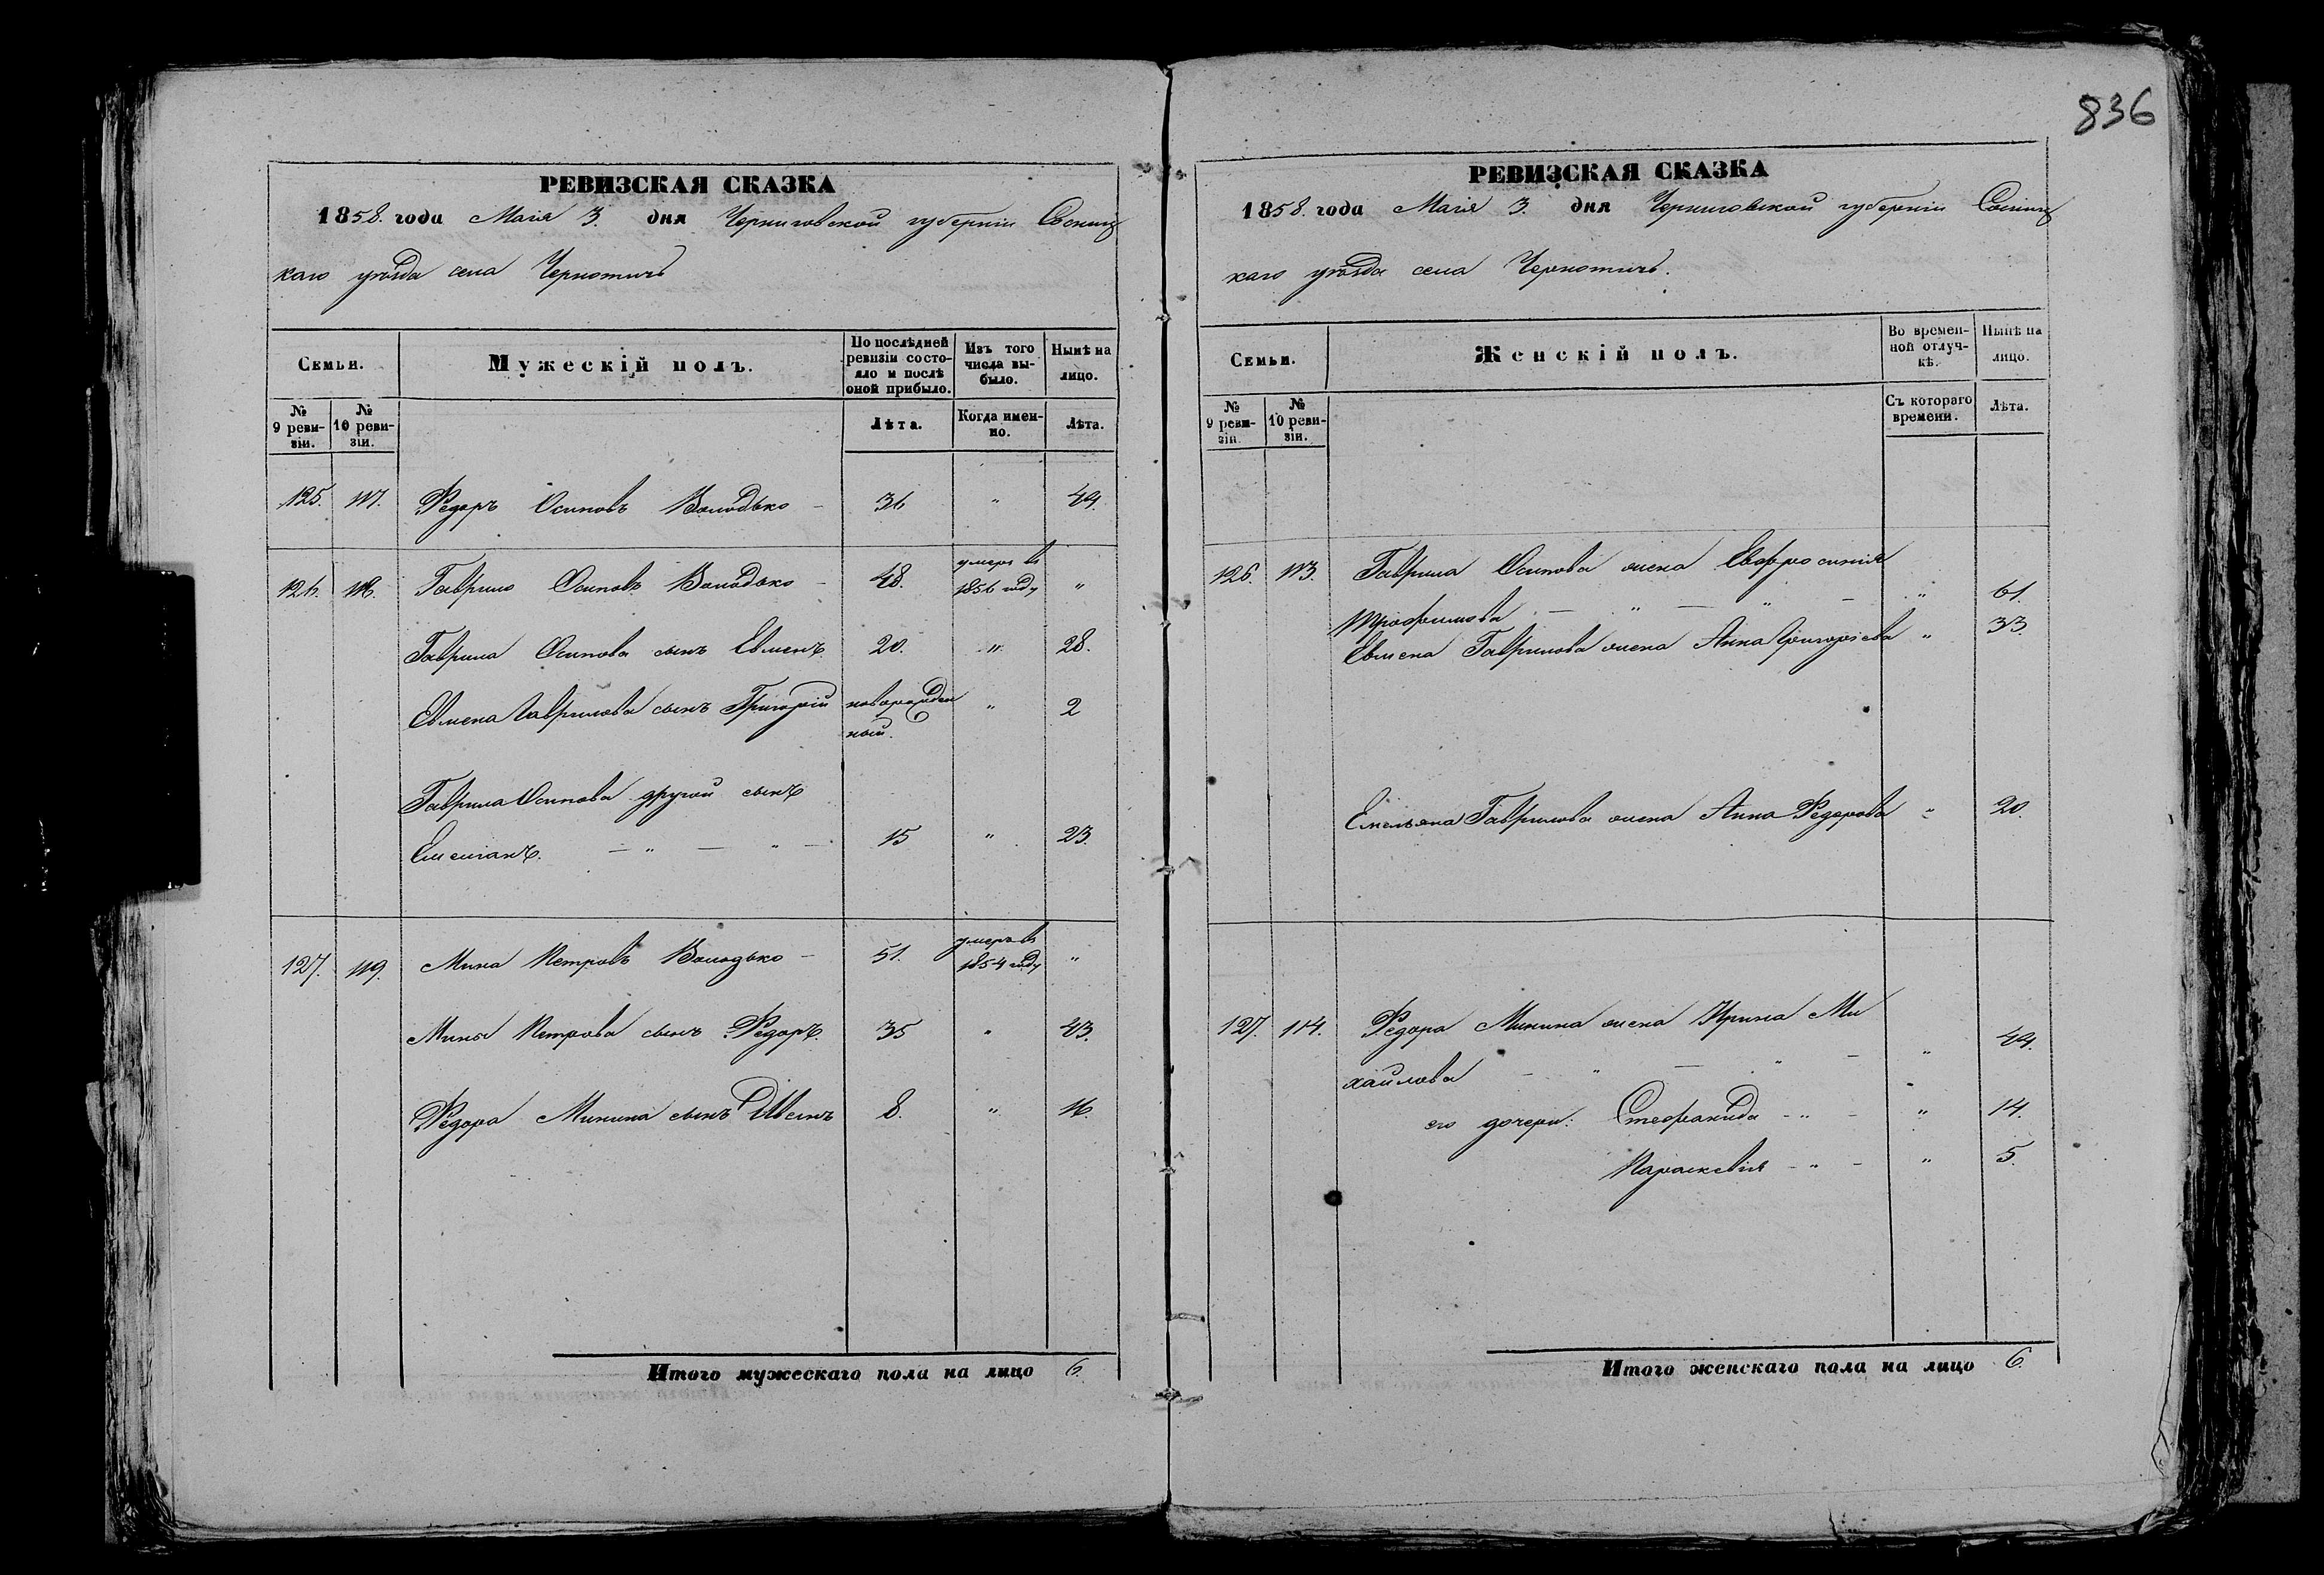 836
РЕВИЗСКАЯ СКАЗКА
1858. года Мая 3. дня Черниговской губерніи Сосниц
каго уѣзда села Чернотичъ
Семьи.
Мужескій полъ.
По послѣдней ревизіи состояло и послѣ оной прибыло.
Изъ того числа выбыло.
Нынѣ на лицо.
№ 9 ревизіи.
№ 10 ревизіи.
Лѣта.
Когда именно.
Лѣта.
125. 117. Федоръ Осиповъ Володько - 36 " 44.
126. 118. Гаврило Осиповъ Володько - 48. умеръ въ 1856 году "
Гаврила Осипова сынъ Евменъ. 20. " 28.
Евмена Гаврилова сынъ Григорій новорожден ный. " 2
Гаврила Осипова другой сынъ
Емелианъ. - " - " - 15 " 23.
127. 119. Мина Петровъ Володько - 51. умеръ въ 1854 году "
Мины Петрова сынъ Федоръ. 35 " 43.
Федора Минина сынъ 8. " 16.
Итого мужескаго пола на лицо 6.
РЕВИЗСКАЯ СКАЗКА
1858. года Мая 3. дня Черниговской губерніи Сосниц
каго уѣзда села Чернотичъ.
Семьи.
Женскій полъ.
Во временной отлучкѣ.
Нынѣ на лицо.
№ 9 ревизіи.
№ 10 ревизіи.
Съ котораго времени.
Лѣта.
126. 113. Гаврила Осипова жена Евфросинія
Трофимова - " - " - " 61.
Евмена Гаврилова жена Анна Григорьева " 33.
Емельяна Гаврилова жена Анна Федорова " 20.
127. 114. Федора Минина жена Ирина Ми
хайлова - " - " - " 44.
его дочери: Стефанида - " - " 14.
Параскевія - " - " 5.
Итого женскаго пола на лицо 6.